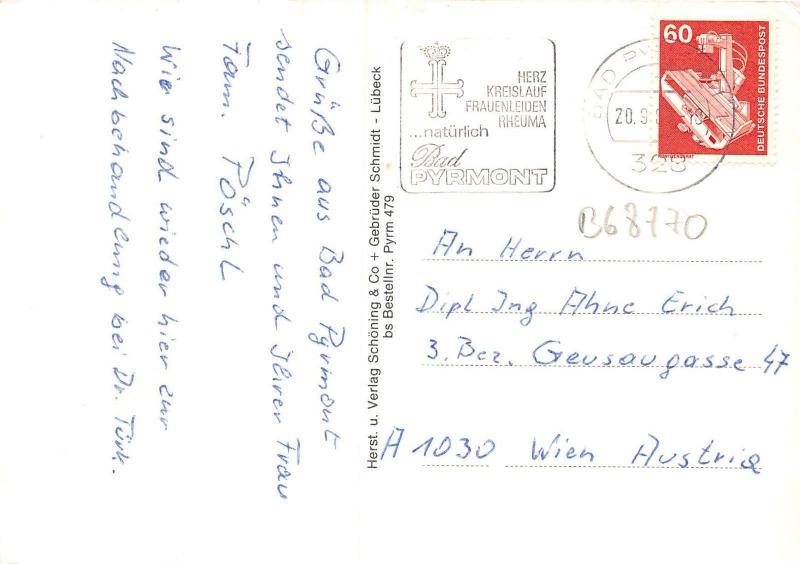 Grüße aus Bad Pyrmont
sendet Ihnen und Ihrer Frau
Fam. Pöschl
Wir sind wieder hier zur
Nachbehandlung bei Dr. Türk.
Herst. u. Verlag Schöning & Co + Gebrüder Schmidt - Lübeck
bs Bestellnr. Pyrm 479
HERZ
KREISLAUF
FRAUENLEIDEN
RHEUMA
...natürlich
Bad
PYRMONT
BAD
20.9.
328
60
DEUTSCHE BUNDESPOST
B68770
An Herrn
Dipl Ing Ahne Erich
3. Bez. Geusaugasse 47
A 1030 Wien Austria